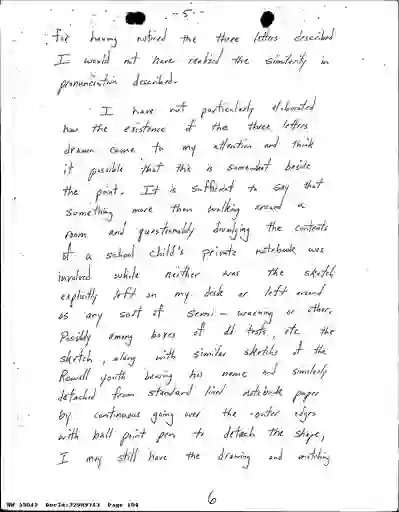 - 5 -
for having noticed the three letters described
I would not have realized the similarity in
pronunciation described.
I have not particularly elaborated
how the existence of the three letters
drawn came to my attention and think
it possible that this is somewhat beside
the point. It is sufficient to say that
something more than walking around a
room and questionably divulging the contents
of a school child's private notebook was
involved while neither was the sketch
explicitly left on my desk or left around
as any sort of semi-warning or other.
Possibly among boxes of old tests, etc the
sketch, along with similar sketches of the
Rowell youth bearing his name and similarly
detached from standard lined notebook paper
by continuous going over the outer edges
with ball point pen to detach the shape,
I may still have the drawing and matching
6
NW 55042 DocId:32989743 Page 104